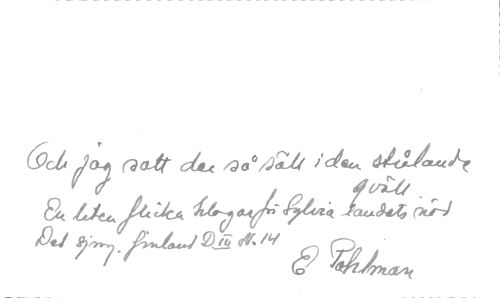 Och jag satt der så säll i den strålande
qväll
En liten flicka klagar för Sylvia landets nöd
Det sjng. Finland D III N. 14
E Pohlman